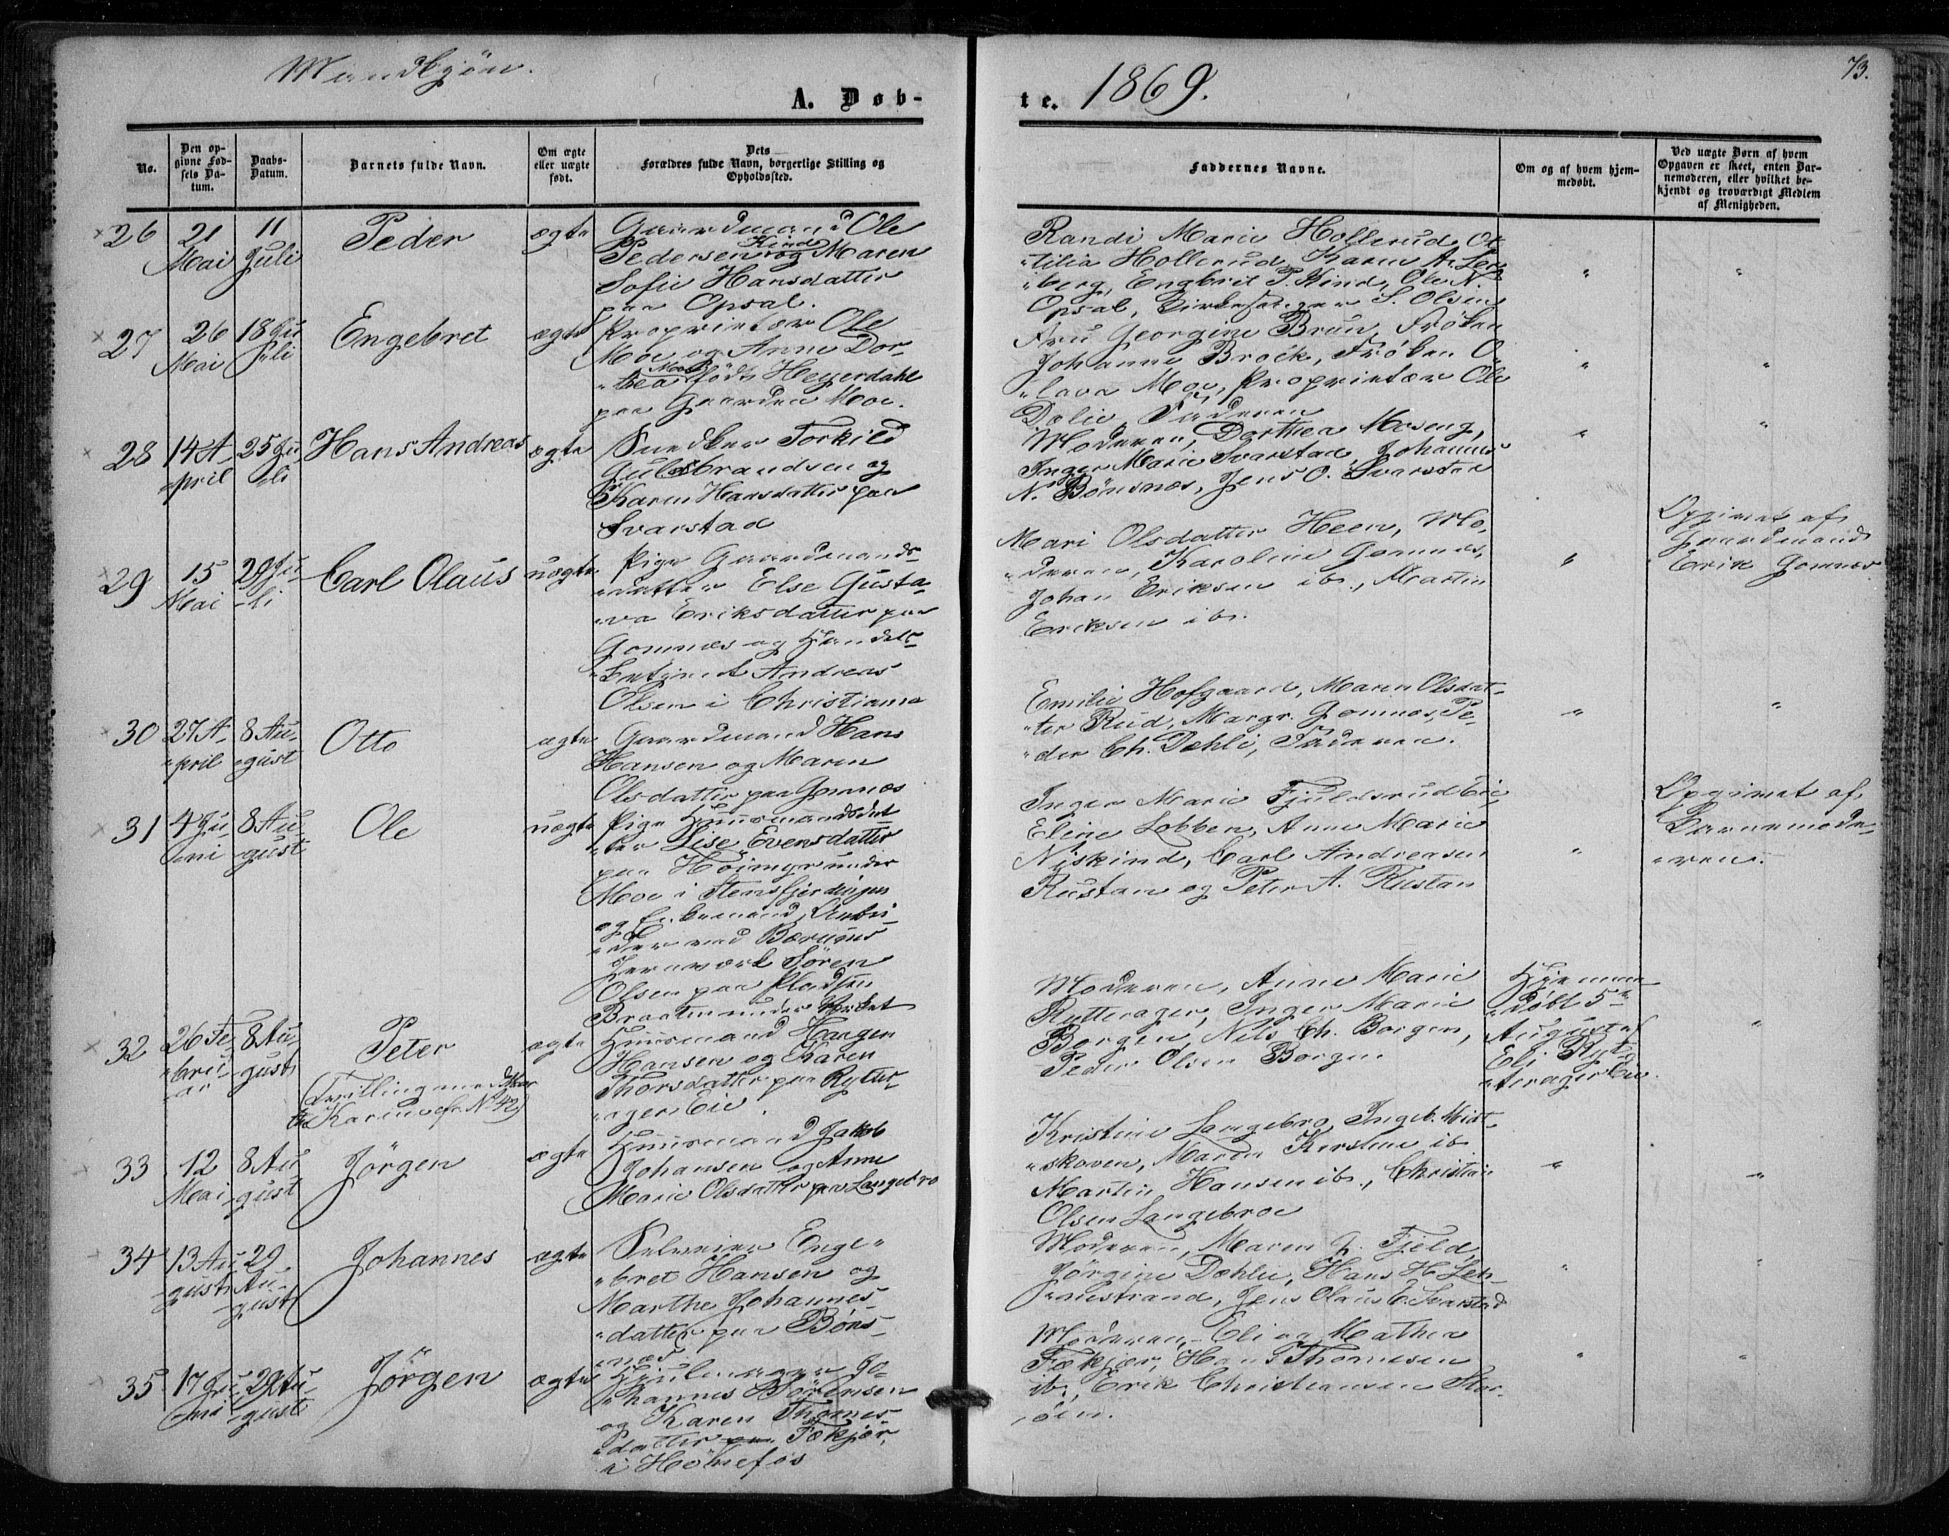 Mandkjøn.
A. Døb-
te. 1869.
73.
No.
Den op-
givne Fød-
sels Da-
tum.
Daabs-
Datum.
Barnets fulde Navn.
Om ægte
eller uægte
født.
Dets
Forældres fulde Navn, borgerlige Stilling og
Opholdssted.
Faddernes Navne.
Om og af hvem hjem-
medøbt.
Ved uægte Børn af hvem
Opgaven er skeet, enten Bar-
nemoderen, eller hvilket be-
kjendt og troværdigt Medlem
af Menigheden.
26
21
Mai
11
Juli
Peder
ægte
Gaardmand Ole
Pedersen Kind og Maren
Sofie Hansdatter
paa Opsal.
Randi Marie Hollerud, Ot-
tilia Hollerud, Karen A. Ler-
berg, Engbret P. Kind, Ole N.
Opsal, Kirkesanger S. Olsen
27
26
Mai
18 Ju-
li
Engebret
ægte
Proprietær Ole
Moe og Anne Dor-
thea Moe født Heyerdahl
paa Gaarden Moe.
Fru Georgine Brun, Frøken
Johanne Brock, Frøken O-
lava Moe, Proprietær Ole
Dælie, Faderen
28
14 A-
pril
25 Ju-
li
Hans Andreas
ægte
Snedker Torkild
Gulbrandsen og
Karen Hansdatter paa
Svarstad
Moderen, Dorthea Moseng,
Inger Marie Svarstad, Johannes
N. Bönsnes, Jens O. Svarstad
29
15
Mai
29 Ju-
li
Carl Olaus
uægte
Pige Gaardmands-
datter Else Gusta-
va Eriksdatter paa
Gomnæs og Handels-
betjent Andreas
Olsen i Christiania
Mari Olsdatter Heen, Mo-
deren, Karoline Gomnæs,
Johan Eriksen ib., Martin
Eriksen ib.
Opgivet af
Gaardmand
Erik Gomnæs
30
27 A-
pril
8 Au-
gust
Otto
ægte
Gaardmand Hans
Hansen og Maren
Olsdatter paa Gomnæs
Emilie Hofgaard, Maren Olsdat-
ter Rud, Margr. Gomnæs, Pe-
der Ch. Dæhli, Faderen.
31
4 Ju-
ni
8 Au-
gust
Ole
uægte
Pige Huusmandsdat-
ter Lise Evensdatter
paa Höimyr under
Moe i Stensfjerdingen
og Enkemand, Arbei-
der ved Bærums
Jernværk Sören
Olsen paa Pladsen
Braaten under Værket
Inger Marie Fjuldsrud Eie,
Eline Lobben, Anne Marie
Niskind, Carl Andreasen
Rustan og Peter A. Rustan
Opgivet af
Barnemode-
ren.
32
26 Fe-
bru-
ar
8 Au-
gust
Peter
(Tvilling med Mar-
the Karine cfr. No 42)
ægte
Huusmand Hansen
Hansen og Karen
Thorsdatter paa Rytter-
ager Eie.
Moderen, Anne Marie
Rytterager, Inger Marie
Borgen, Nils Ch. Borgen,
Peder Olsen Borgen
Hjemme-
døbt 5te
August af
Eli Ryt-
terager Eie.
33
12
Mai
8 Au-
gust
Jörgen
ægte
Huusmand Jakob
Johansen og Anne
Marie Olsdatter paa Langebro
Kristine Langebro, Ingeb. Midt-
skoven, Maren Kirstine ib.
Martin Hansen ib., Christian
Olsen Langebroe
34
13 Au-
gust
29
Au-
gust
Johannes
ægte
Selveier Enge-
bret Hansen og
Marthe Johannes-
datter paa Böns-
næs.
Moderen, Maren J. Fjeld,
Jörgine Dæhlie, Hans H. Leh-
nestrand, Jens Olaus E. Svarstad
35
17 Ju-
ni
29 Au-
gust
Jörgen
ægte
Hjulmager Jo-
hannes Sörensen
og Karen Thomes-
datter paa Fækjær
i Hönefos
Moderen, Eli og Mathea
Fækjær, Hans Thomesen
ib., Erik Christiansen Stor-
öien.